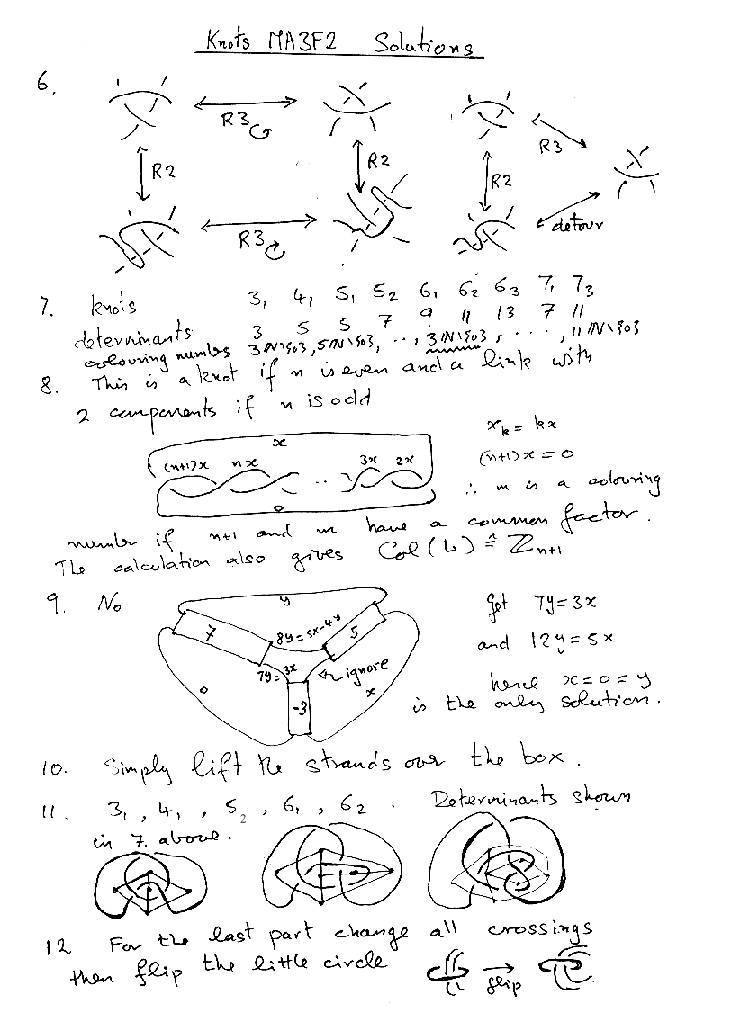 Knots MA3F2 Solutions
6.
R3
R2
R2
R3
R3
R2
detour
7. knots 3₁ 4₁ 5₁ 5₂ 6₁ 6₂ 6₃ 7₁ 7₃
determinants 3 5 5 7 9 11 13 7 11
colouring numbers 3ℕ\{0}, 5ℕ\{0}, . . , 3ℕ\{0}, . . . , 11ℕ\{0}
8. This is a knot if n is even and a link with
2 components if n is odd
x
(n+1)x nx . . 3x 2x
0
xₖ = kx
(n+1)x = 0
∴ m is a colouring
number if n+1 and m have a common factor.
The calculation also gives Col(L) ≅ ℤₙ₊₁
9. No
y
7
8y = 5x-4y
5
7y = 3x
ignore
0
x
-3
Get 7y = 3x
and 12y = 5x
hence x = 0 = y
is the only solution.
10. Simply lift the strands over the box.
11. 3₁, 4₁, 5₂, 6₁, 6₂. Determinants shown
in 7. above.
12 For the last part change all crossings
then flip the little circle
flip